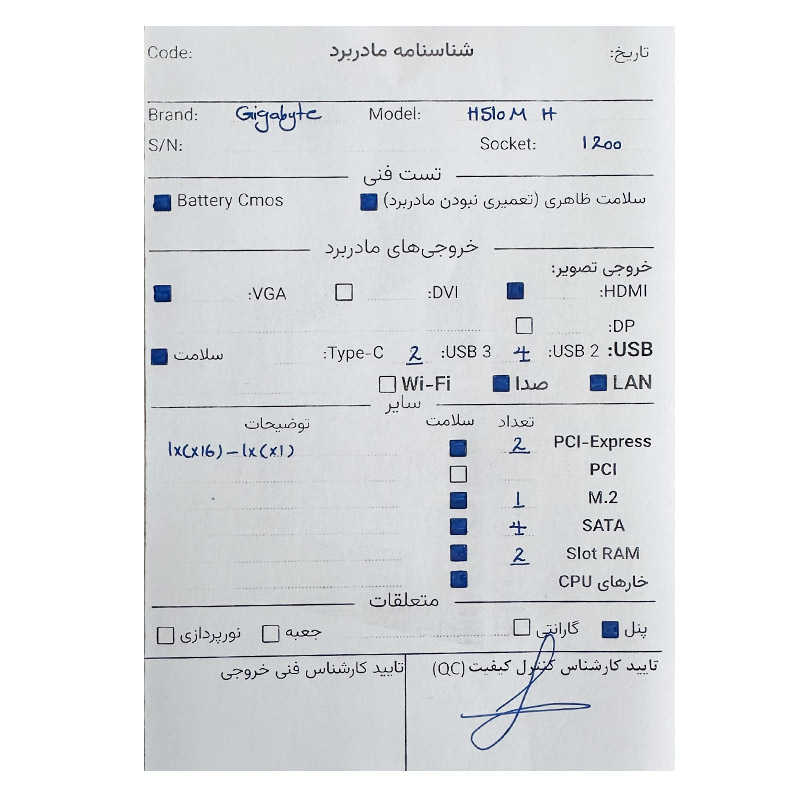 تاریخ: شناسنامه مادربرد Code:
Brand: Gigabyte Model: H510M H
S/N: Socket: 1200
تست فنی
سلامت ظاهری (تعمیری نبودن مادربرد) Battery Cmos
خروجی‌های مادربرد
خروجی تصویر:
HDMI: DVI: VGA:
DP:
USB: USB 2: 4 USB 3: 2 Type-C: سلامت
LAN صدا Wi-Fi
سایر
تعداد سلامت توضیحات
PCI-Express 2 1x(x16) - 1x(x1)
PCI
M.2 1
SATA 4
Slot RAM 2
خارهای CPU
متعلقات
پنل گارانتی جعبه نورپردازی
تایید کارشناس کنترل کیفیت (QC) تایید کارشناس فنی خروجی